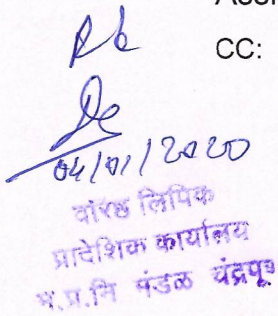 CC:
04/01/2020
वरिष्ठ लिपिक
प्रादेशिक कार्यालय
म.प्र.नि मंडळ चंद्रपूर